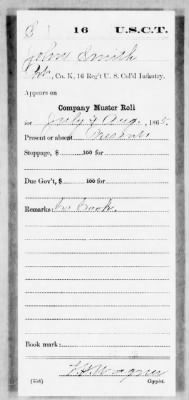 S 16 U.S.C.T.
John Smith
Pvt., Co. K, 16 Reg't U. S. Col'd Infantry.
Appears on
Company Muster Roll
for July & Aug., 1865.
Present or absent Present
Stoppage, $ 100 for
Due Gov't, $ 100 for
Remarks: Co. Cook.
Book mark:
(358) Copyist.